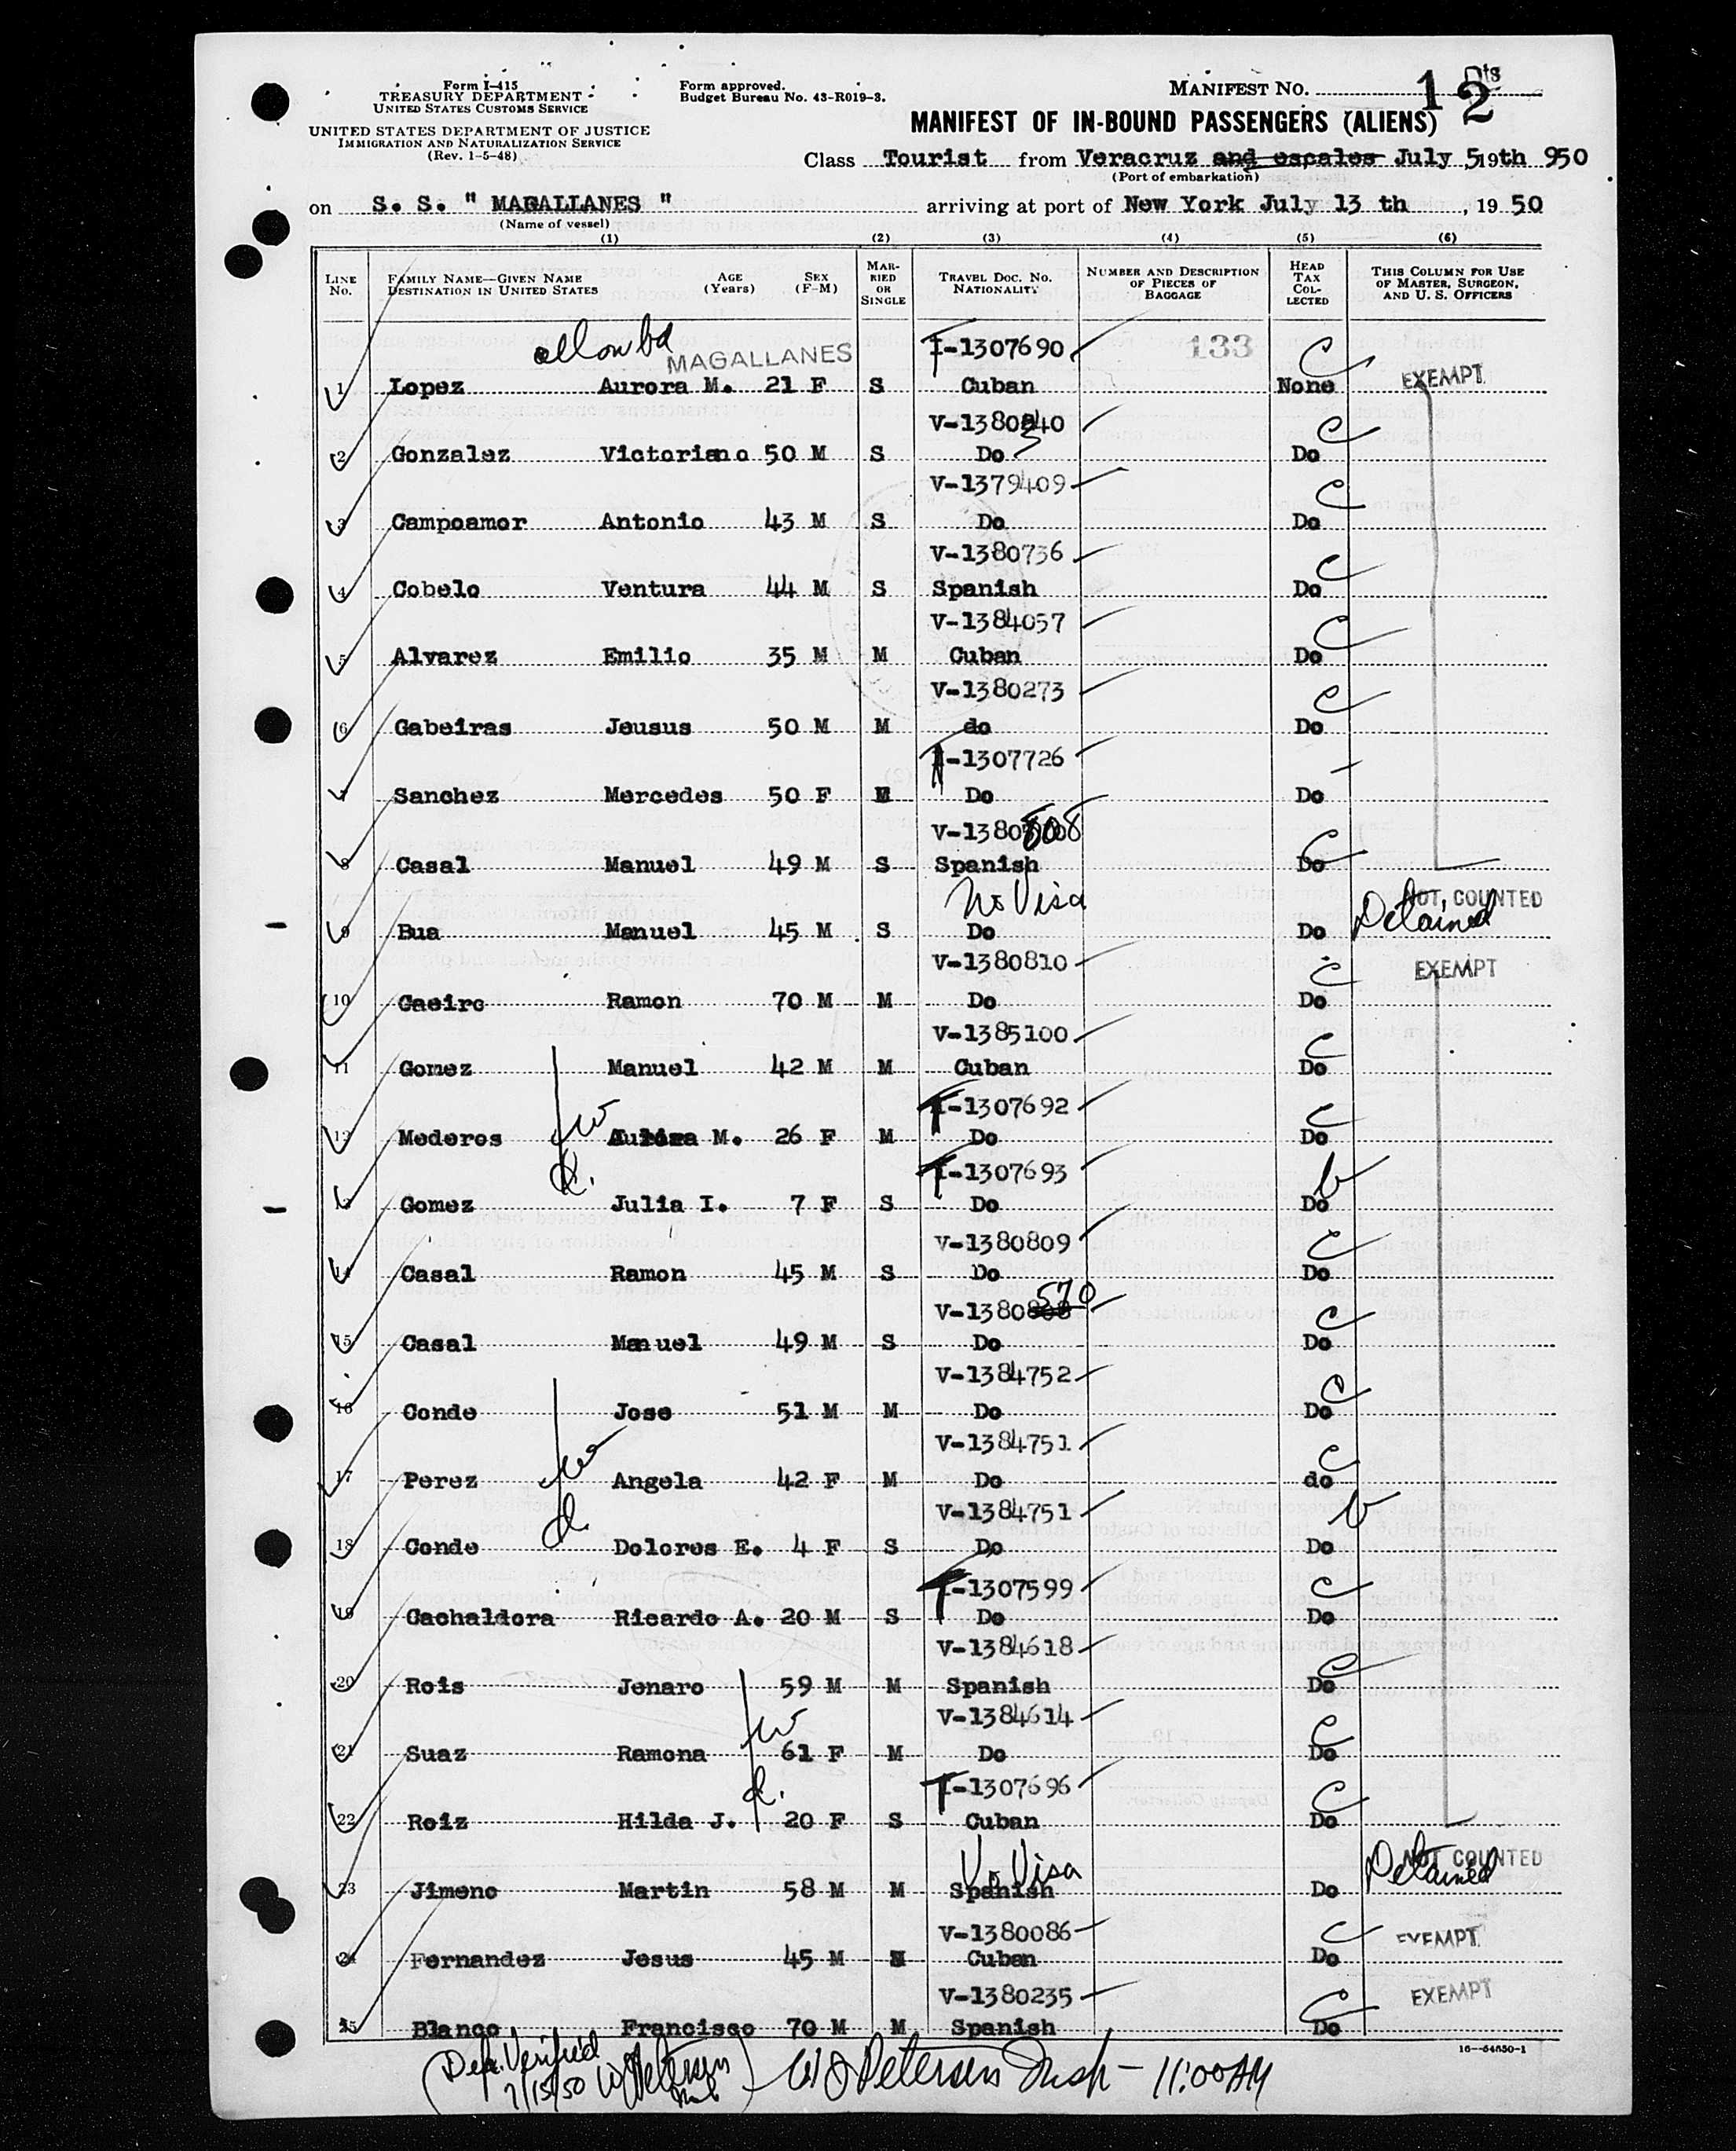 Form I-415
TREASURY DEPARTMENT
UNITED STATES CUSTOMS SERVICE
UNITED STATES DEPARTMENT OF JUSTICE
IMMIGRATION AND NATURALIZATION SERVICE
(Rev. 1-5-48)
Form approved.
Budget Bureau No. 43-R019-3.
MANIFEST NO. 12
MANIFEST OF IN-BOUND PASSENGERS (ALIENS)
Class Tourist from Veracruz and escales July 5,19th 950
(Port of embarkation)
on S. S. " MAGALLANES " arriving at port of New York July 13 th , 19 50
(Name of vessel)
(1) (2) (3) (4) (5) (6)
LINE NO. FAMILY NAME—GIVEN NAME DESTINATION IN UNITED STATES AGE (Years) SEX (F-M) MARRIED OR SINGLE TRAVEL DOC. NO. NATIONALITY NUMBER AND DESCRIPTION OF PIECES OF BAGGAGE HEAD TAX COLLECTED THIS COLUMN FOR USE OF MASTER, SURGEON, AND U. S. OFFICERS
MAGALLANES T-1307690 133 C
1 Lopez Aurora M. 21 F S Cuban None EXEMPT
V-1380340 C
2 Gonzalez Victoriano 50 M S Do Do
V-1379409 C
3 Campoamor Antonio 43 M S Do Do
V-1380736 C
4 Cobelo Ventura 44 M S Spanish Do
V-1384057 C
5 Alvarez Emilio 35 M M Cuban Do
V-1380273 C
6 Gabeiras Jeusus 50 M M do Do
T-1307726
7 Sanchez Mercedes 50 F M Do Do
V-1380808 C
8 Casal Manuel 49 M S Spanish Do
No Visa NOT COUNTED
9 Bua Manuel 45 M S Do Do Detained
V-1380810 C EXEMPT
10 Caeiro Ramon 70 M M Do Do
V-1385100 C
11 Gomez Manuel 42 M M Cuban Do
T-1307692 C
12 Mederos w M. 26 F M Do Do
d. T-1307693 b
13 Gomez Julia I. 7 F S Do Do
V-1380809 C
14 Casal Ramon 45 M S Do Do
570
V-1380808 C
15 Casal Manuel 49 M S Do Do
V-1384752 C
16 Conde Jose 51 M M Do Do
V-1384751 C
17 Perez w Angela 42 F M Do do
d. V-1384751 b
18 Conde Dolores E. 4 F S Do Do
T-1307599 C
19 Cachaldora Ricardo A. 20 M S Do Do
V-1384618 C
20 Rois Jenaro 59 M M Spanish Do
V-1384614 C
21 Suaz Ramona w 61 F M Do Do
d. T-1307696 C
22 Roiz Hilda J. 20 F S Cuban Do
No Visa NOT COUNTED
23 Jimeno Martin 58 M M Spanish Do Detained
V-1380086 C EXEMPT
24 Fernandez Jesus 45 M Cuban Do
V-1380235 C EXEMPT
25 Blanco Francisco 70 M M Spanish Do
16—54650-1
(Dep. Verified
7/15/50 W Petersen
Insp) W J Petersen Insp - 11:00 AM